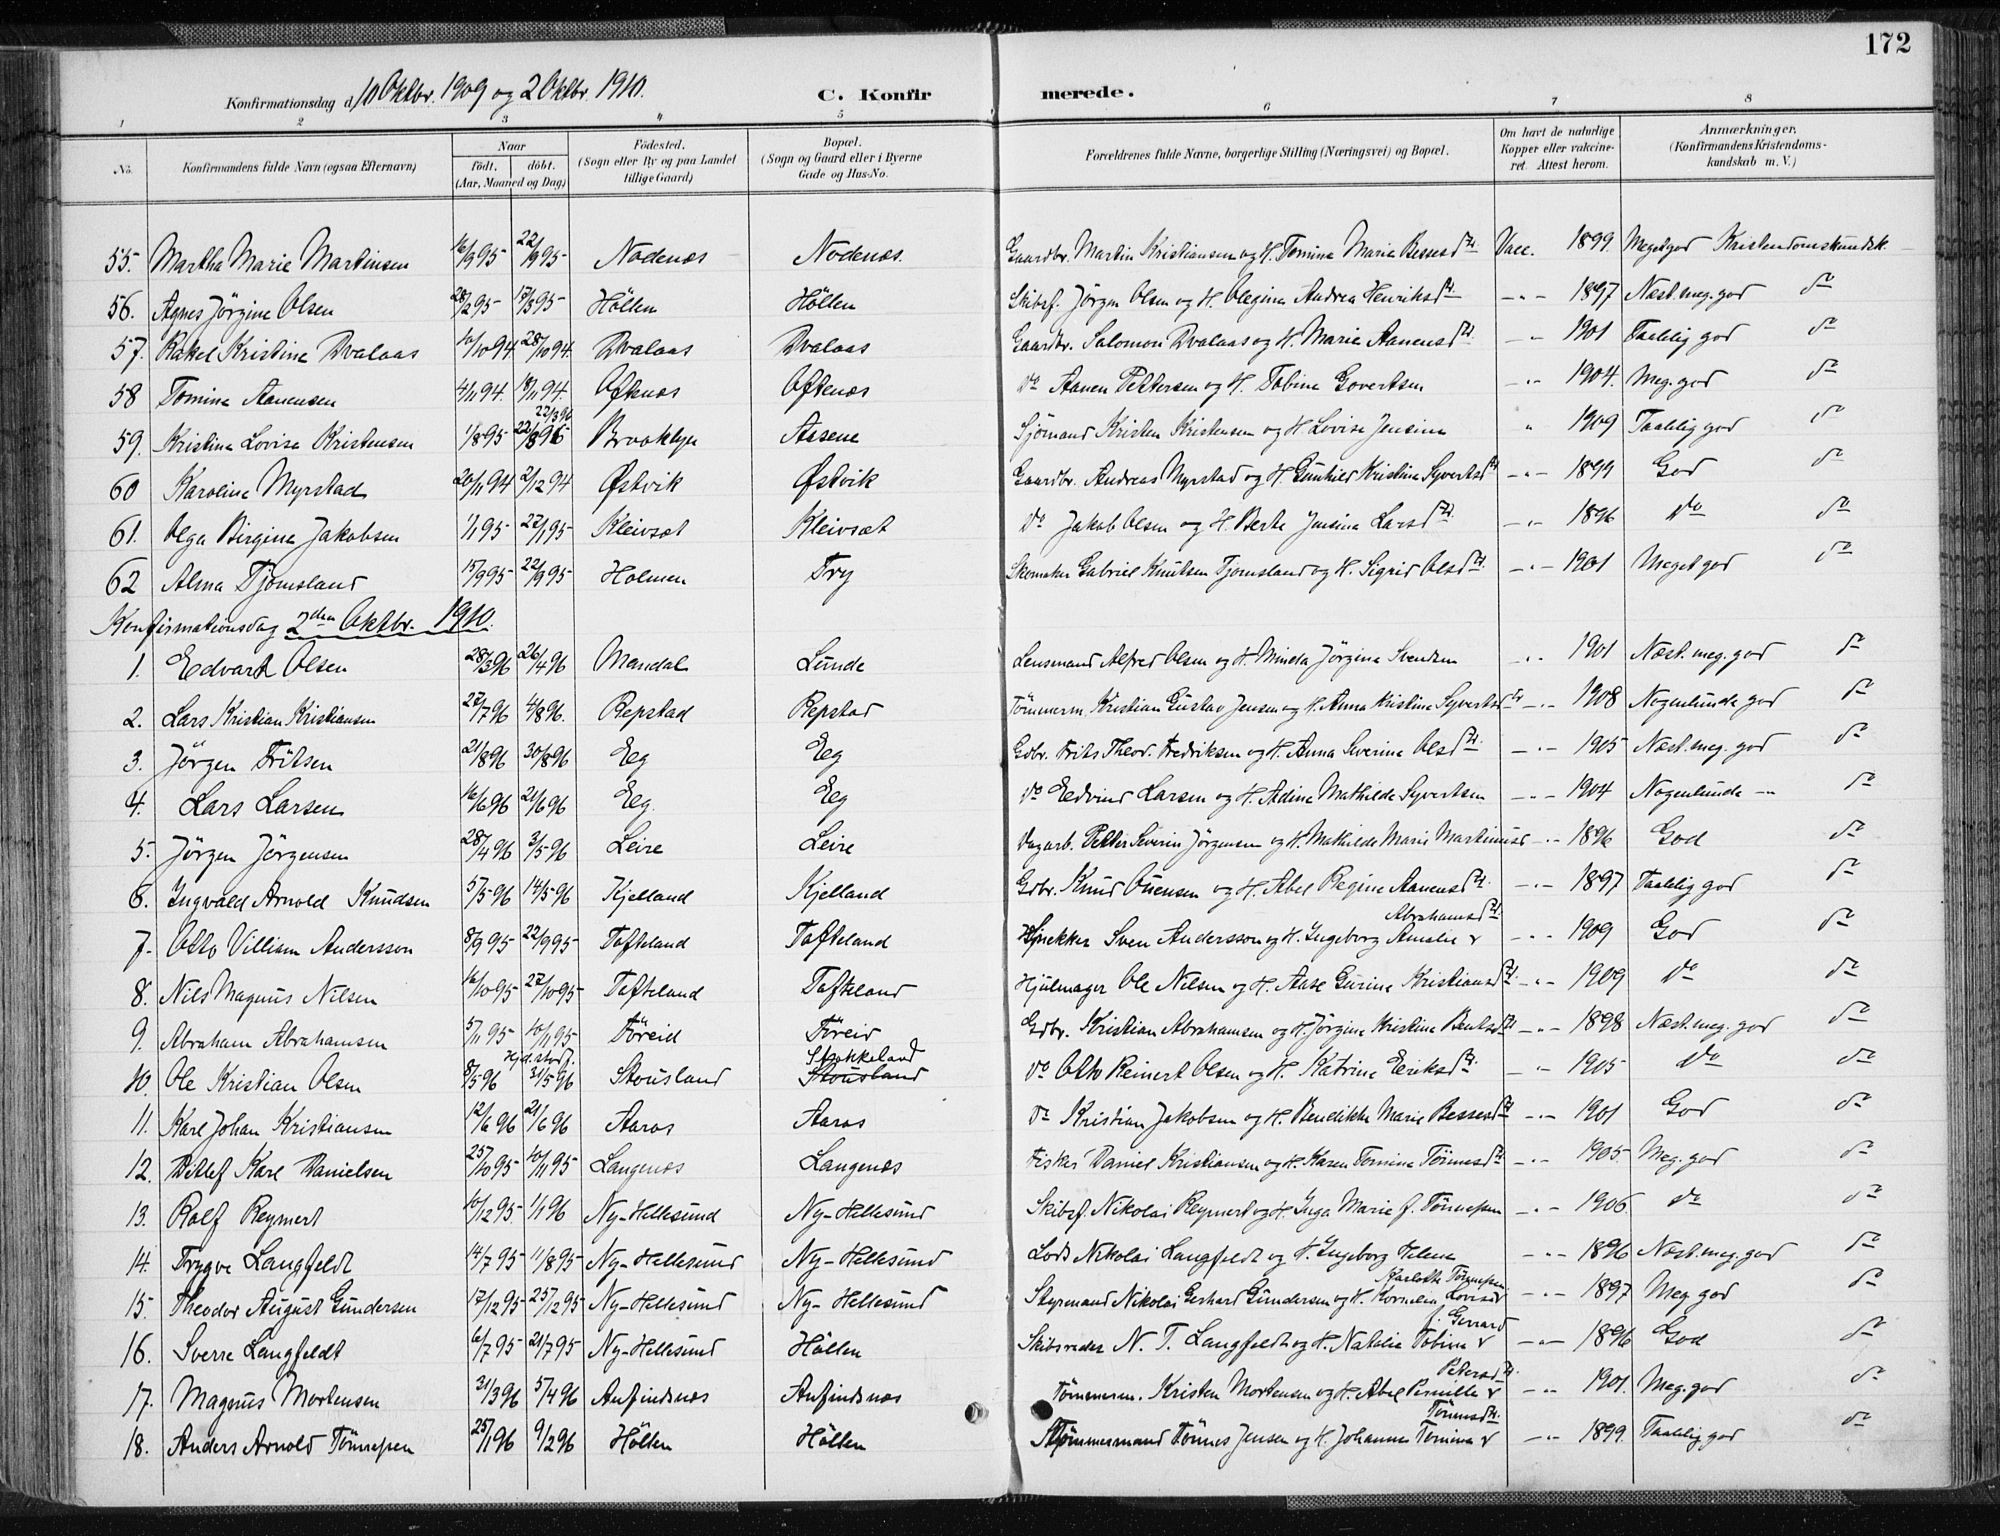 172
Konfirmationsdag d. 10 Oktbr. 1909 og 2 Oktbr. 1910. C. Konfirmerede.
1 2 3 4 5 6 7 8
No. Konfirmandens fulde Navn (ogsaa Efternavn) Naar födt. döbt. (Aar, Maaned og Dag) Födested. (Sogn eller By og paa Landet tillige Gaard) Bopæl. (Sogn og Gaard eller i Byerne Gade og Hus-No. Forældrenes fulde Navne, borgerlige Stilling (Næringsvei) og Bopæl. Om havt de naturlige Kopper eller vaccineret. Attest herom. Anmærkninger. (Konfirmandens Kristendomskundskab m. V.)
55. Martha Marie Martinsen 16/9 95 22/9 95 Nodenæs Nodenæs. Gaardbr. Martin Kristiansen og H. Tomine Marie Bessesdtr. Vacc. 1899. Meget god Kristendomskundsk
56. Agnes Jörgine Olsen 28/2 95 17/3 95 Höllen Höllen Skibsf. Jörgen Olsen og H. Olegine Andrea Henriksdtr. -"- 1897 Næst. meg. god do
57. Rakel Kristine Dvalaas 10/10 94 28/10 94. Dvalaas Dvalaas Gaardbr. Salomon Dvalaas og H. Marie Aanensdtr. -"- 1901 Taalelig god do
58 Tomine Aanensen 4/11 94. 18/11 94. Oftenæs Oftenæs do Aanen Pettersen og H. Tobine Govertsen -"- 1904. Meg. god do
59. Kristine Lovise Kristensen 1/8 95 22/3 96 Brooklyn Aasene Sjömand Kristen Kristensen og H. Lovise Jensine " 1909 Taalelig god do
60 Karoline Myrstad 20/11 94 2/12 94 Østvik Østvik Gaardbr. Andreas Myrstad og H. Gunhild Kristine Syvertsdtr -"- 1899 God do
61. Olga Birgine Jakobsen 1/1 95 27/1 95 Kleivsæt Kleivsæt do Jakob Olsen og H. Berte Jensine Larsdtr. -"- 1896 do do
62 Alma Tjomsland 15/9 95 22/9 95 Holmen Try Skomaker Gabriel Knutsen Tjomsland og H. Sigrid Olsdtr. -"- 1901 Meget god do
Konfirmationsdag 2den Oktbr. 1910.
1. Edvart Olsen 28/3 96 26/4 96 Mandal Lunde Lensmand Alfred Olsen og H. Minda Jörgine Svendsen -"- 1901 Næst. meg. god do
2. Lars Kristian Kristiansen 27/7 96 4/8 96. Repstad Repstad Tömmerm. Kristian Gustav Jensen og H. Anna Kristine Syvertsdtr -"- 1908 Nogenlunde god do
3. Jörgen Fritsen 21/8 96 30/8 96 Eeg Eeg Gdbr. Frits Theod. Fredriksen og H. Anna Severine Olsdtr. -"- 1905 Næst. meg. god do
4. Lars Larsen 16/6 96 21/6 96 Eeg. Eeg do Edvind Larsen og H. Adine Mathilde Syvertsen -"- 1904 Nogenlunde -"- do
5. Jörgen Jörgensen 28/4 96 3/5 96 Leire Leire Dagarb. Petter Severin Jörgensen og H. Mathilde Marie Martinusd -"- 1896 God do
6. Ingvald Arnold Knudsen 5/5 96 14/5 96 Kjelland Kjelland Gdbr. Knud Ouensen og H. Abel Regine Aanensdtr. -"- 1897 Taalelig god do
7. Otto Villiam Andersson 8/9 95 22/9 95 Tofteland Tofteland Snekker Sven Andersson og H. Ingeborg Amalie Abrahamsdtr. -"- 1909 God do
8. Nils Magnus Nilsen 16/10 95 27/10 95 Tofteland Tofteland Hjulmager Ole Nilsen og H. Aase Gurine Kristiansdtr. -"- 1909 do do
9. Abraham Abrahamsen 5/11 95 10/11 95 Föreid Föreid Gdbr. Kristian Abrahamsen og H. Jörgine Kristine Bentsdtr. -"- 1898 Næst. meg. god do
10. Ole Kristian Olsen 8/5 96 Hjd. st. 31/5 96 Stousland Stokkeland Stousland do Otto Reinert Olsen og H. Katrine Eriksdtr. -"- 1905 do do
11. Karl Johan Kristiansen 12/6 96 21/6 96 Aaros Aaros do Kristian Jakobsen og H. Benedikte Marie Bessesdtr -"- 1901 God do
12. Ditlef Karl Danielsen 25/10 95 10/11 95 Langenæs Langenæs Fisker Daniel Kristiansen og H. Karen Tomine Tönnesdtr. -"- 1905 Meg. god do
13. Rolf Reymert 10/12 95 1/1 96 Ny-Hellesund Ny-Hellesund Skibsf. Nikolai Reymert og H. Inga Marie f. Tönnesen -"- 1906. do do
14. Trygve Langfeldt 14/7 95 11/8 95 Ny-Hellesund Ny-Hellesund Lods Nikolai Langfeldt og H. Ingeborg Helene -"- 1896 Næst. meg. god do
15 Theodor August Gundersen 17/12 95 25/12 95 Ny-Hellesund Ny-Hellesund Styrmand Nikolai Gerhard Gundersen og H. Kornelia Lovise Karlotte Tönnesen -"- 1897 Meg. god do
16. Sverre Langfeldt 6/7 95 21/7 95 Ny-Hellesund Höllen Skibsreder N. T. Langfeldt og H. Natalie Tobine f. Gerrard -"- 1896 God do
17. Magnus Mortensen 31/3 96 5/4 96 Aufindsnæs Aufindsnæs Tömmerm. Kristen Mortensen og H. Abel Pernille Petersdtr. -"- 1901. Meg. god do
18. Anders Arnold Tönnesen 25/1 96 9/2 96 Höllen Höllen Tömmermand Tönnes Jensen og H. Johanne Tomine Tönnesdtr. -"- 1899. Taalelig god do